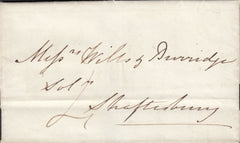 Messrs Wilts & Burridge
Solrs
Shaftesbury